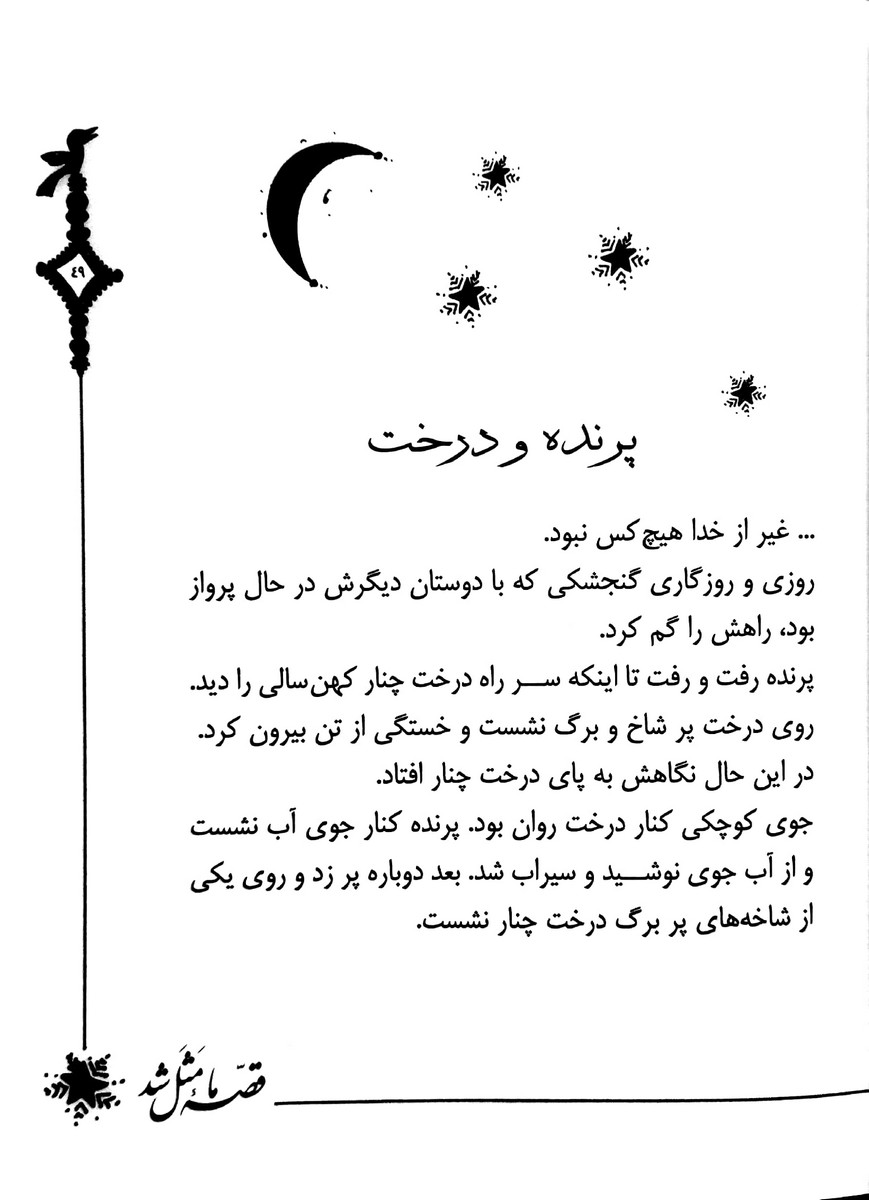 ۴۹
پرنده و درخت
... غیر از خدا هیچ‌کس نبود.
روزی و روزگاری گنجشکی که با دوستان دیگرش در حال پرواز
بود، راهش را گم کرد.
پرنده رفت و رفت تا اینکه ســر راه درخت چنار کهن‌سالی را دید.
روی درخت پر شاخ و برگ نشست و خستگی از تن بیرون کرد.
در این حال نگاهش به پای درخت چنار افتاد.
جوی کوچکی کنار درخت روان بود. پرنده کنار جوی آب نشست
و از آب جوی نوشــید و سیراب شد. بعد دوباره پر زد و روی یکی
از شاخه‌های پر برگ درخت چنار نشست.
قصّهٔ ما مَثَل شد